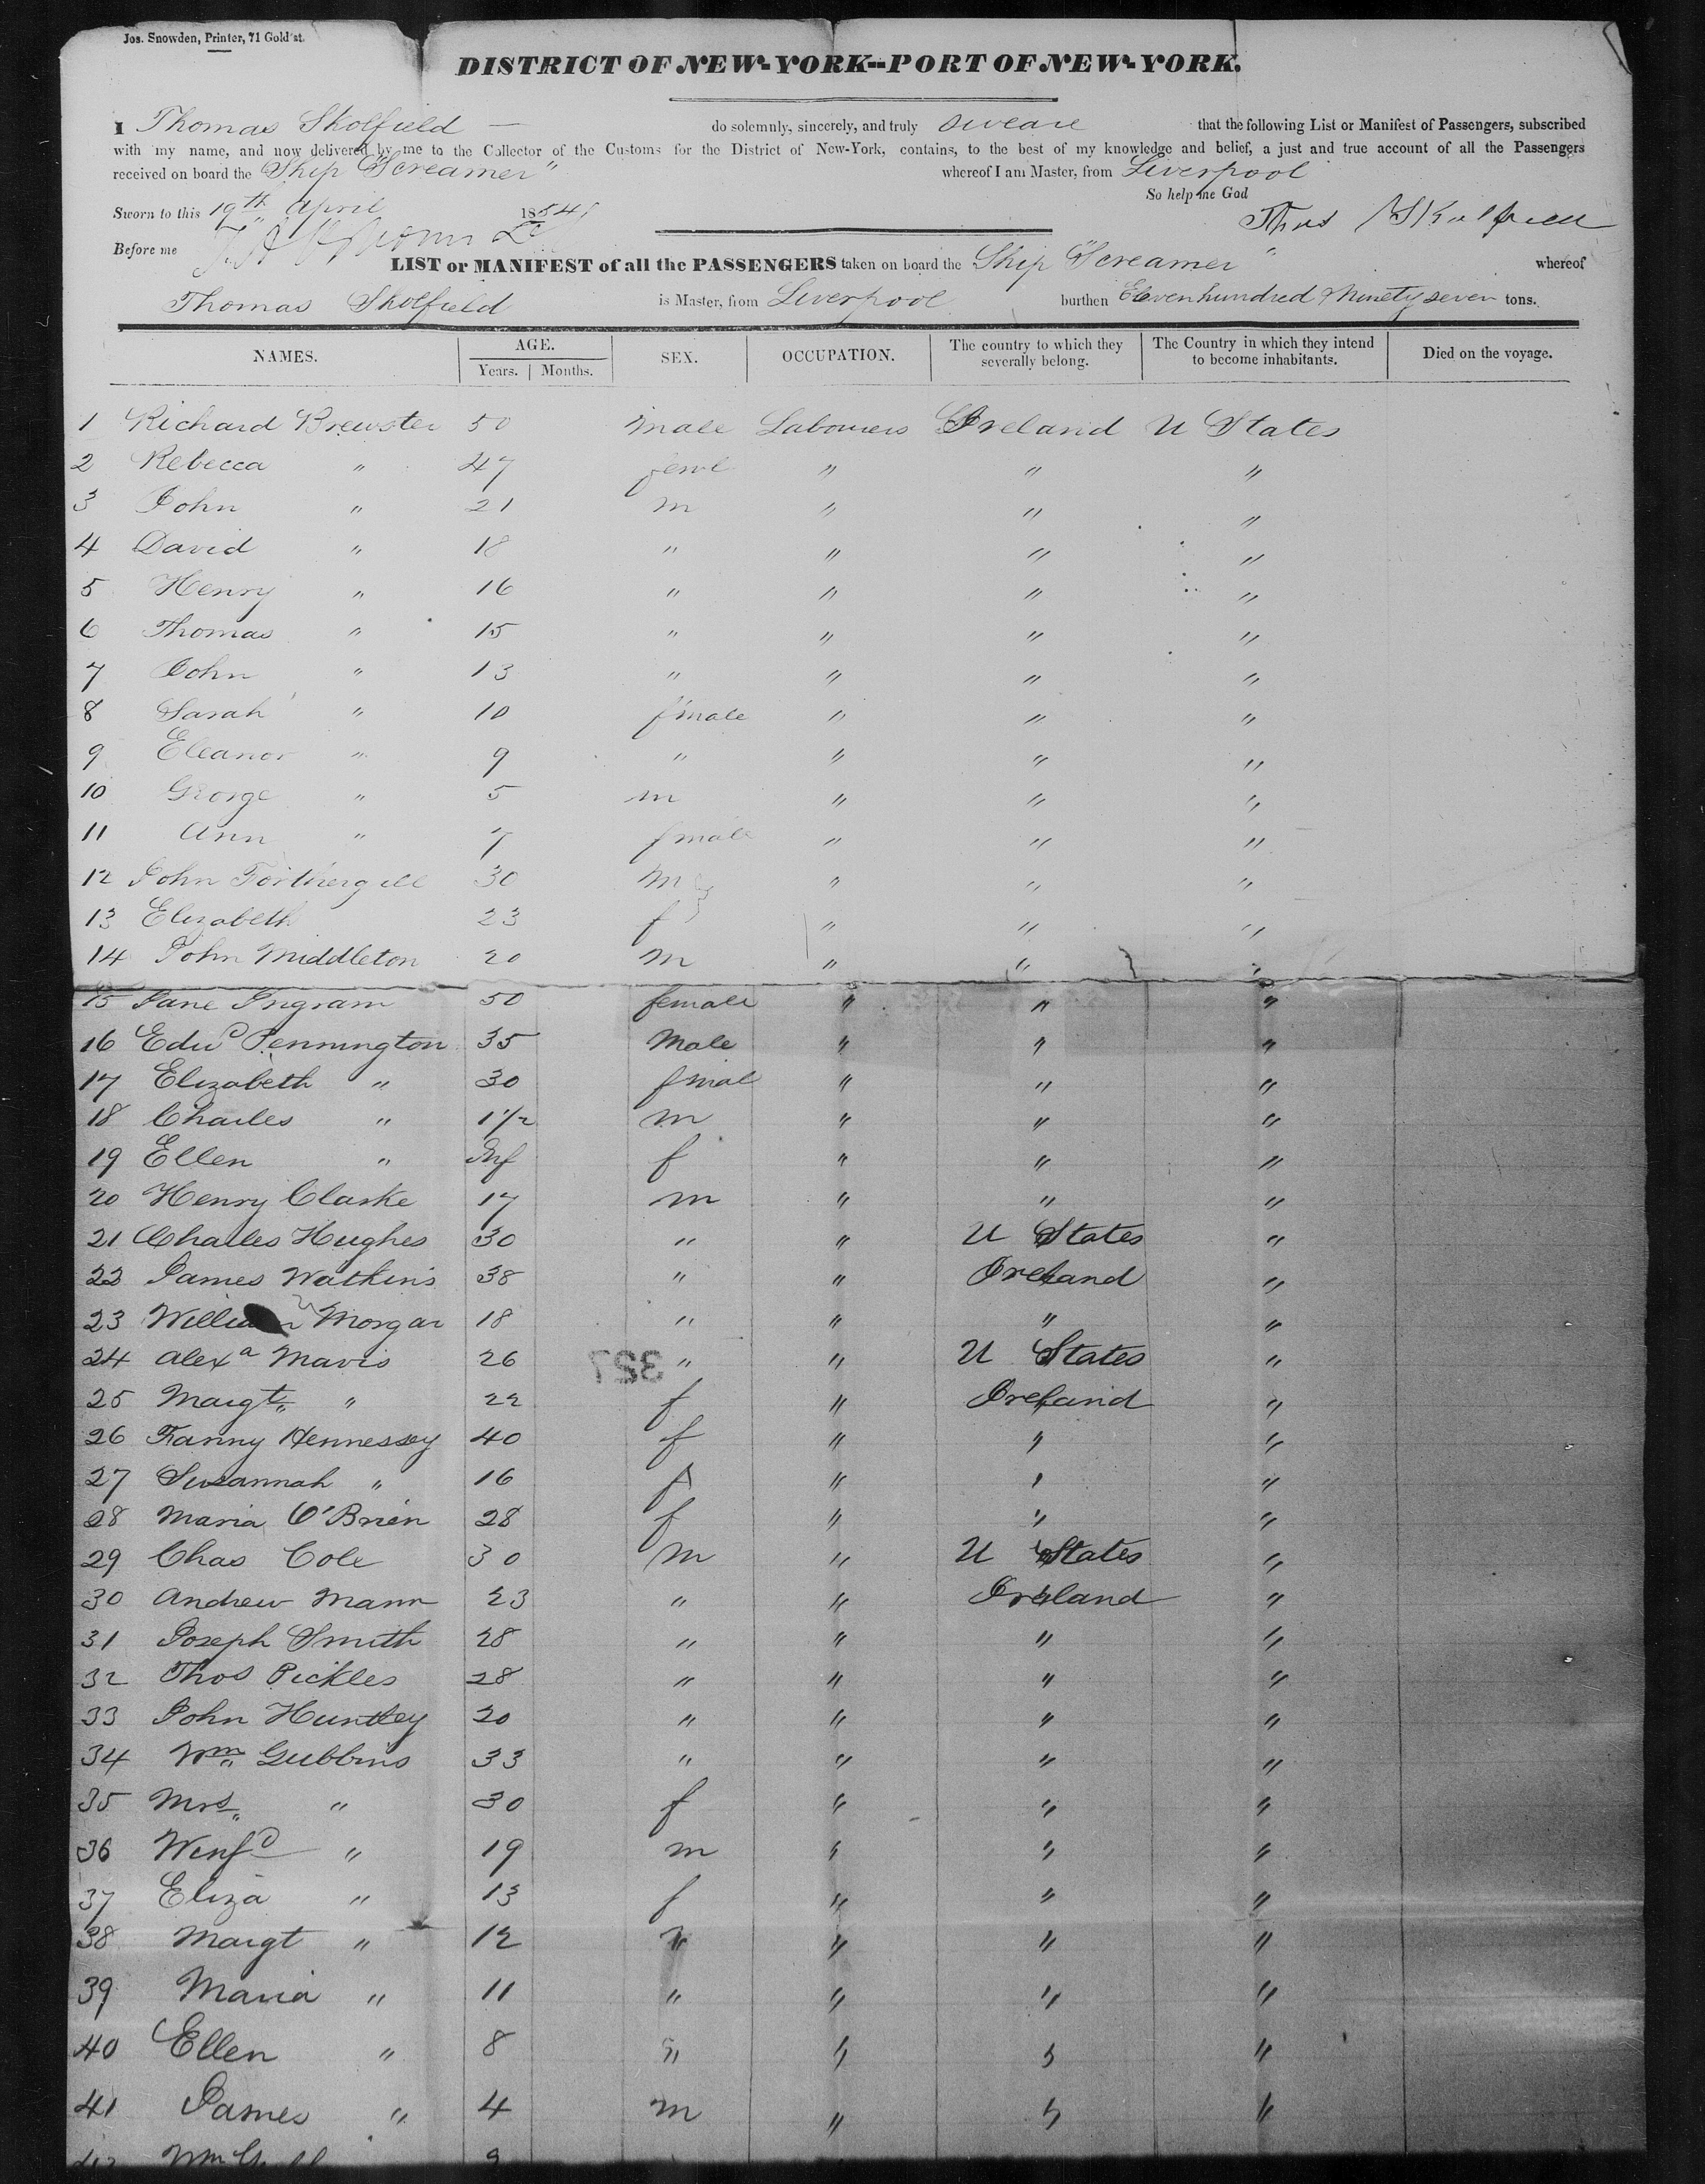 Jos. Snowden, Printer, 71 Gold st.
DISTRICT OF NEW-YORK--PORT OF NEW-YORK.
I Thomas Skolfield — do solemnly, sincerely, and truly sweare that the following List or Manifest of Passengers, subscribed
with my name, and now delivered by me to the Collector of the Customs for the District of New-York, contains, to the best of my knowledge and belief, a just and true account of all the Passengers
received on board the Ship "Screamer" whereof I am Master, from Liverpool
So help me God
Sworn to this 19th April 1854
Thos Skolfield
Before me
LIST or MANIFEST of all the PASSENGERS taken on board the Ship "Screamer" whereof
Thomas Skolfield is Master, from Liverpool burthen Elevenhundred Ninety seven tons.
NAMES. AGE. Years. Months. SEX. OCCUPATION. The country to which they severally belong. The Country in which they intend to become inhabitants. Died on the voyage.
1 Richard Brewster 50 male Labourers Ireland U States
2 Rebecca " 47 feml " " "
3 John " 21 m " " "
4 David " 18 " " " "
5 Henry " 16 " " " "
6 Thomas " 15 " " " "
7 John " 13 " " " "
8 Sarah " 10 fmale " " "
9 Eleanor " 9 " " " "
10 George " 5 m " " "
11 Ann " 7 fmale " " "
12 John Forthergill 30 m " " "
13 Elizabeth 23 f " " "
14 John Middleton 20 m " " "
15 Jane Ingram 50 female " " "
16 Edwd Pennington 35 Male " " "
17 Elizabeth " 30 fmal " " "
18 Charles " 1 1/2 m " " "
19 Ellen " Inf f " " "
20 Henry Clarke 17 m " " "
21 Charles Hughes 30 " " U States "
22 James Watkins 38 " " Ireland "
23 William Morgan 18 " " " "
24 Alexa Mavis 26 " " U States "
387
25 Margt " 22 f " Ireland "
26 Fanny Hennessey 40 f " " "
27 Susannah " 16 f " " "
28 Maria O'Brien 28 f " " "
29 Chas Cole 30 m " U States "
30 Andrew Mann 23 " " Ireland "
31 Joseph Smith 28 " " " "
32 Thos Pickles 28 " " " "
33 John Huntley 20 " " " "
34 Wm Gubbins 33 " " " "
35 Mrs " 30 f " " "
36 Winfd " 19 m " " "
37 Eliza " 13 f " " "
38 Margt " 12 " " " "
39 Maria " 11 " " " "
40 Ellen " 8 " " " "
41 James " 4 m " " "